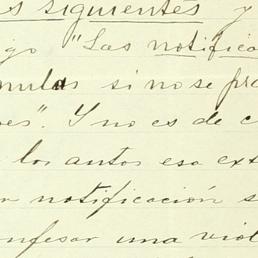 s siguientes y
go "Las notifica
nulas si no se pra
es". Y no es de c
los autos esa ext
r notificación s
onfesar una viol